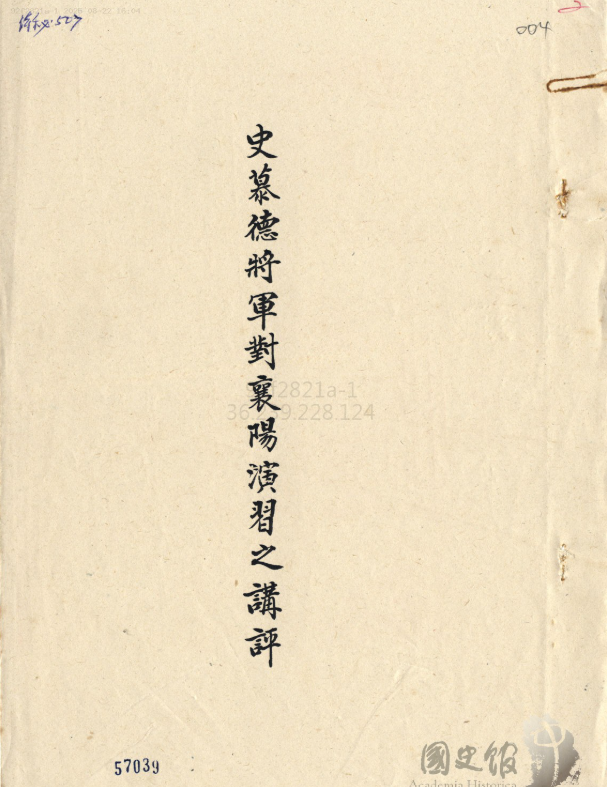 004
史慕德將軍對襄陽演習之講評
36.239.228.124
57039
國史館
Academia Historica